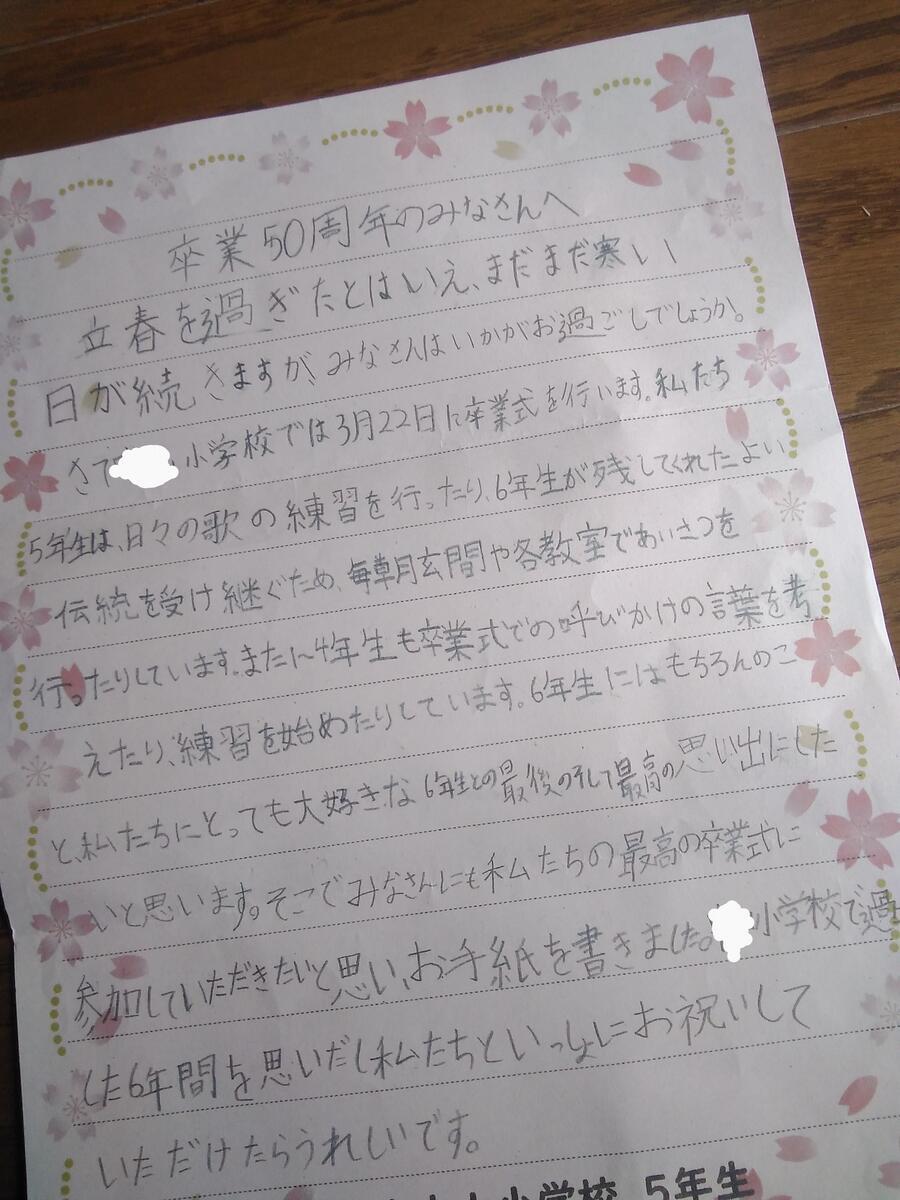 卒業50周年のみなさんへ
立春を過ぎたとはいえ、まだまだ寒い
日が続きますが、みなさんはいかがお過ごしでしょうか。
さて 小学校では3月22日に卒業式を行います。私たち
5年生は、日々の歌の練習を行ったり、6年生が残してくれたよい
伝統を受け継ぐため、毎朝玄関や各教室であいさつを
行ったりしています。また1〜4年生も卒業式での呼びかけの言葉を考
えたり、練習を始めたりしています。6年生にはもちろんのこ
と、私たちにとっても大好きな6年生との最後のそして最高の思い出にした
いと思います。そこでみなさんにも私たちの最高の卒業式に
参加していただきたいと思い、お手紙を書きました。 小学校で過ご
した6年間を思いだし私たちといっしょにお祝いして
いただけたらうれしいです。
小学校 5年生